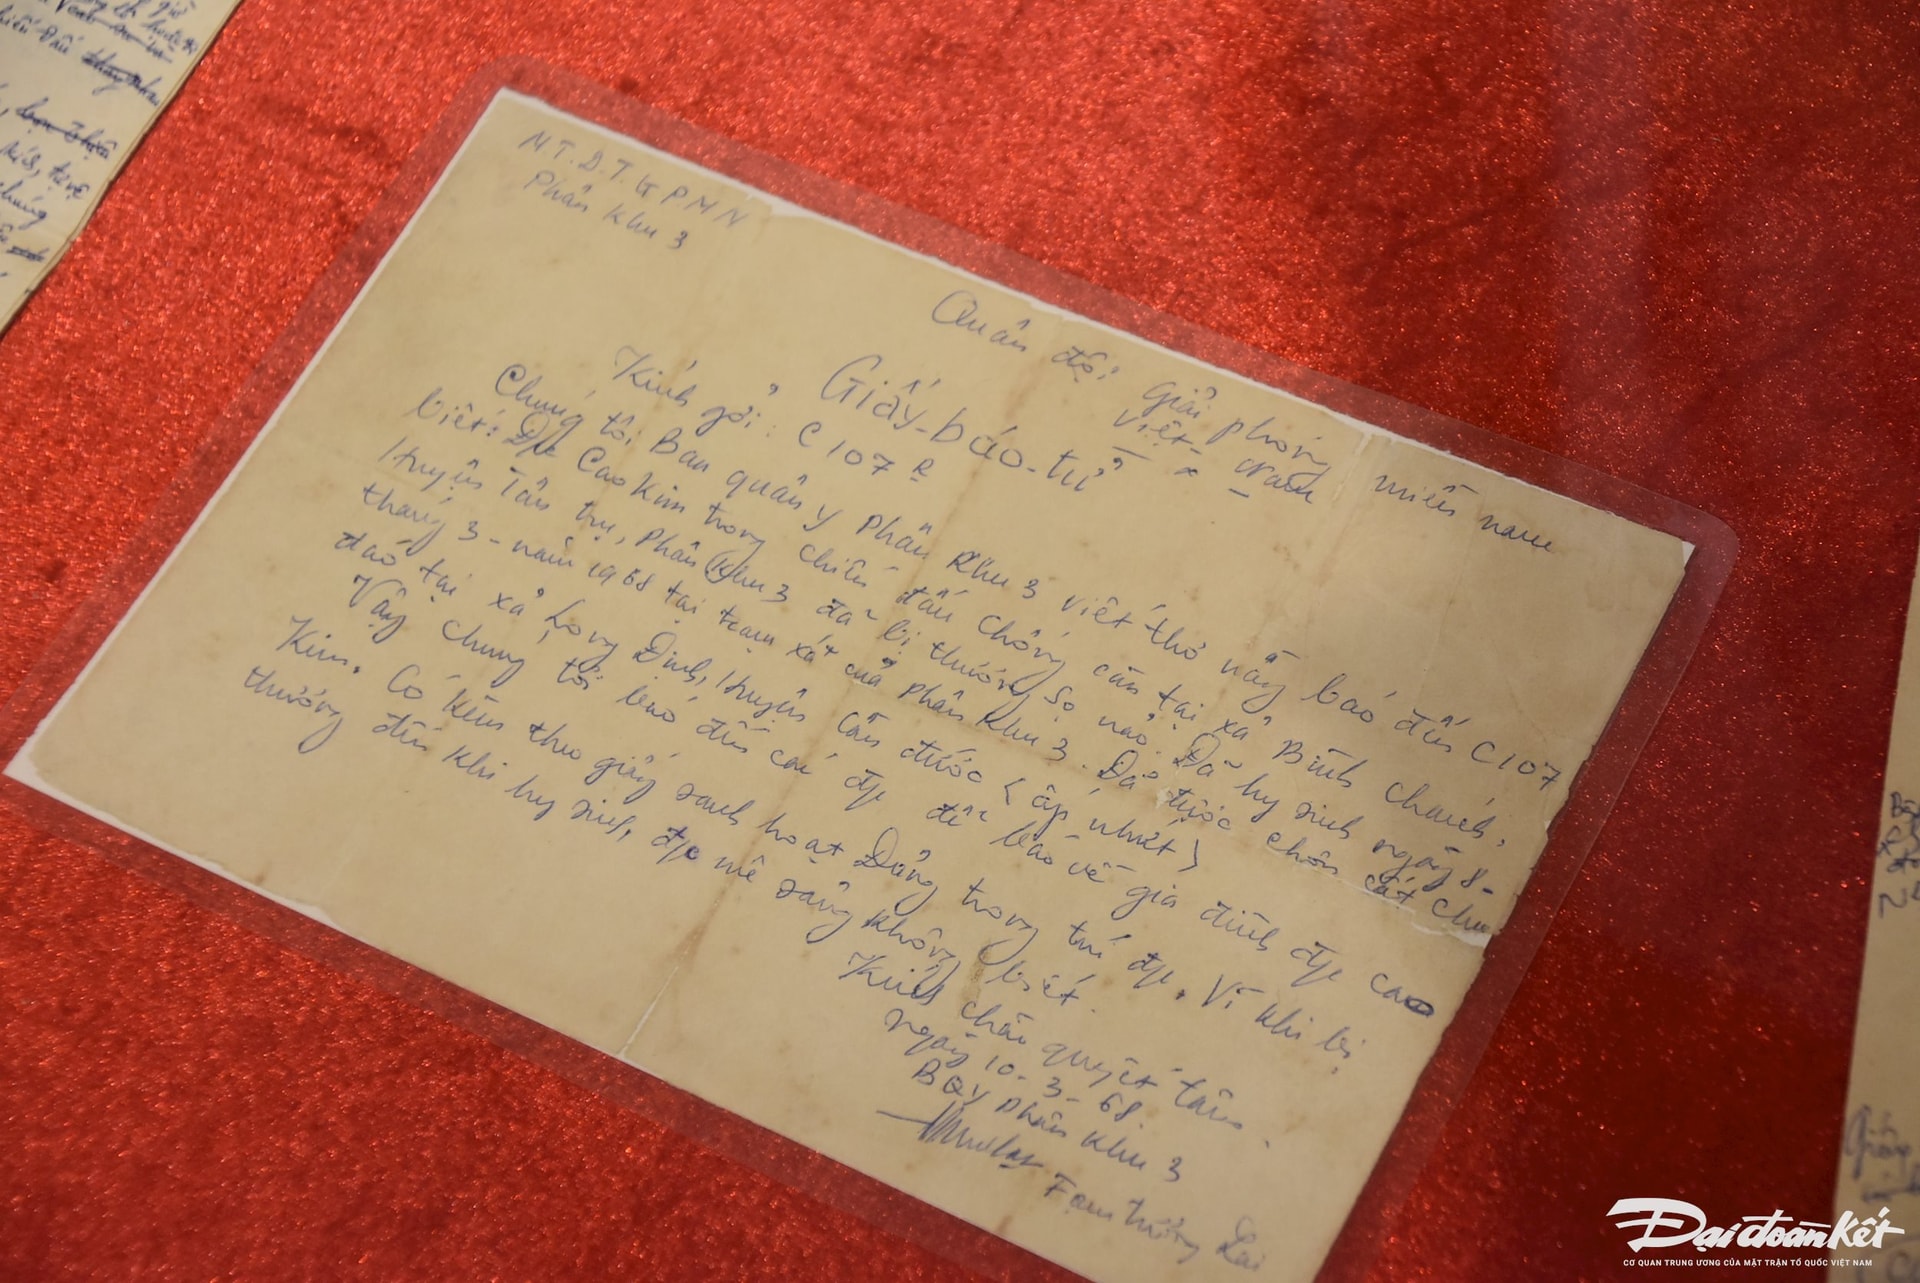 M.T.D.T.G P M N
Phân Khu 3
Quân đội giải phóng miền nam
Việt - Nam
Giấy-báo-tử
Kính gởi: C 107 R
Chúng tôi Ban quân y Phân Khu 3 viết thơ nầy báo đến C 107
biết: Đ/c Cao Kim trong chiến đấu chống càn tại xã Bình Chánh,
Huyện Tân trụ, Phân Khu 3 đã bị thương sọ nảo. Đã hy sinh ngày 8-
tháng 3 - năm 1968 tại trạm xá của Phân Khu 3. Đã được chôn cất chu
đáo tại xả Long Định, Huyện Cần đước < ấp nhứt >
Vậy chúng tôi báo đến các đ/c để báo về gia đình đ/c Cao
Kim. Có kèm theo giấy sanh hoạt Đảng trong túi đ/c. Vì khi bị
thương đến khi hy sinh, đ/c mê sảng không biết.
Kính chào quyết tâm.
ngày 10-3-68
BQY Phân Khu 3
Fạm trường Lai
giờ
chúng
Giấy
Đại đoàn kết
CƠ QUAN TRUNG ƯƠNG CỦA MẶT TRẬN TỔ QUỐC VIỆT NAM